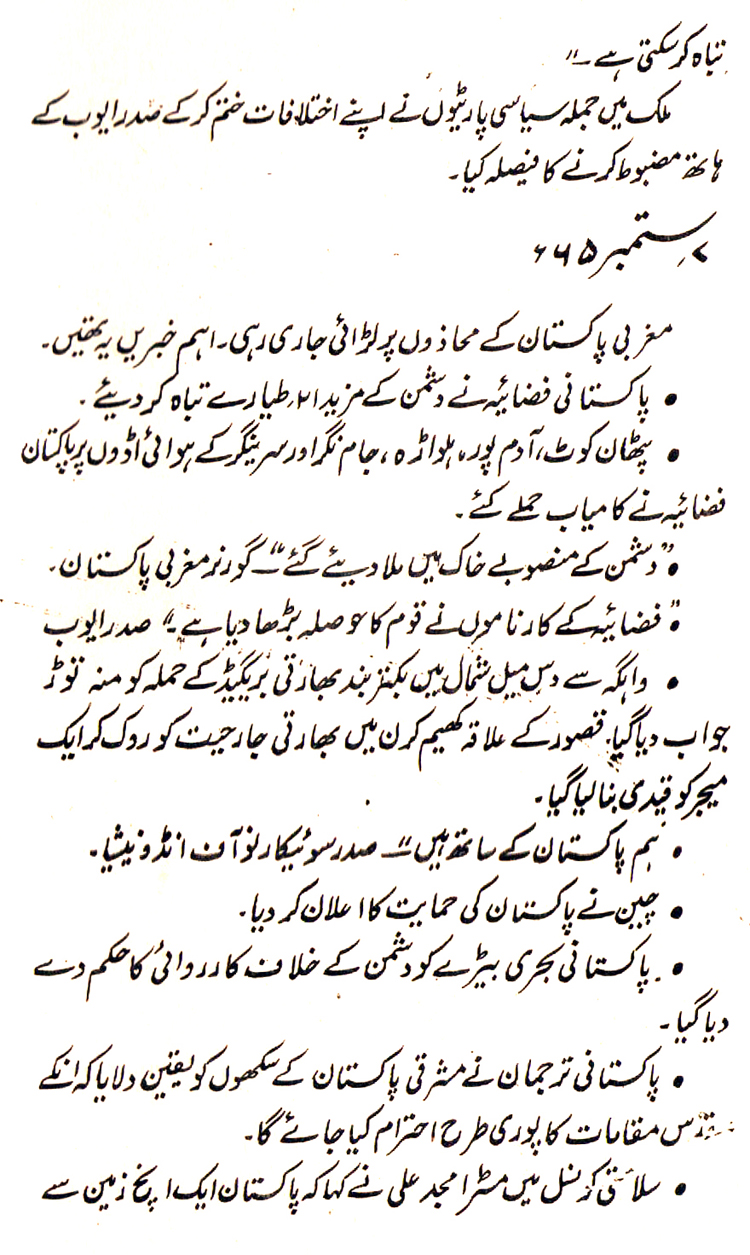 تباہ کر سکتی ہے۔"
ملک میں جملہ سیاسی پارٹیوں نے اپنے اختلافات ختم کر کے صدر ایوب کے
ہاتھ مضبوط کرنے کا فیصلہ کیا۔
۷ ستمبر ۶۶۵
مغربی پاکستان کے محاذوں پر لڑائی جاری رہی۔ اہم خبریں یہ تھیں۔
• پاکستانی فضائیہ نے دشمن کے مزید ۲۱ طیارے تباہ کر دیئے۔
• پٹھان کوٹ، آدم پور، ہلواڑہ، جام نگر اور سرینگر کے ہوائی اڈوں پر پاکستان
فضائیہ نے کامیاب حملے کئے۔
• "دشمن کے منصوبے خاک میں ملا دیئے گئے"۔ گورنر مغربی پاکستان۔
• "فضائیہ کے کارناموں نے قوم کا حوصلہ بڑھا دیا ہے۔" صدر ایوب
• واہگہ سے دس میل شمال میں بکتر بند بھارتی بریگیڈ کے حملہ کو منہ توڑ
جواب دیا گیا۔ قصور کے علاقہ کھیم کرن میں بھارتی جارحیت کو روک کر ایک
میجر کو قیدی بنا لیا گیا۔
• ہم پاکستان کے ساتھ ہیں"۔ صدر سوئیکارنو آف انڈونیشیا۔
• چین نے پاکستان کی حمایت کا اعلان کر دیا۔
• پاکستانی بحری بیڑے کو دشمن کے خلاف کارروائی کا حکم دے
دیا گیا۔
• پاکستانی ترجمان نے مشرقی پاکستان کے سکھوں کو یقین دلایا کہ انکے
مقدس مقامات کا پوری طرح احترام کیا جائے گا۔
• سلامتی کونسل میں مسٹر امجد علی نے کہا کہ پاکستان ایک اپنچ زمین سے